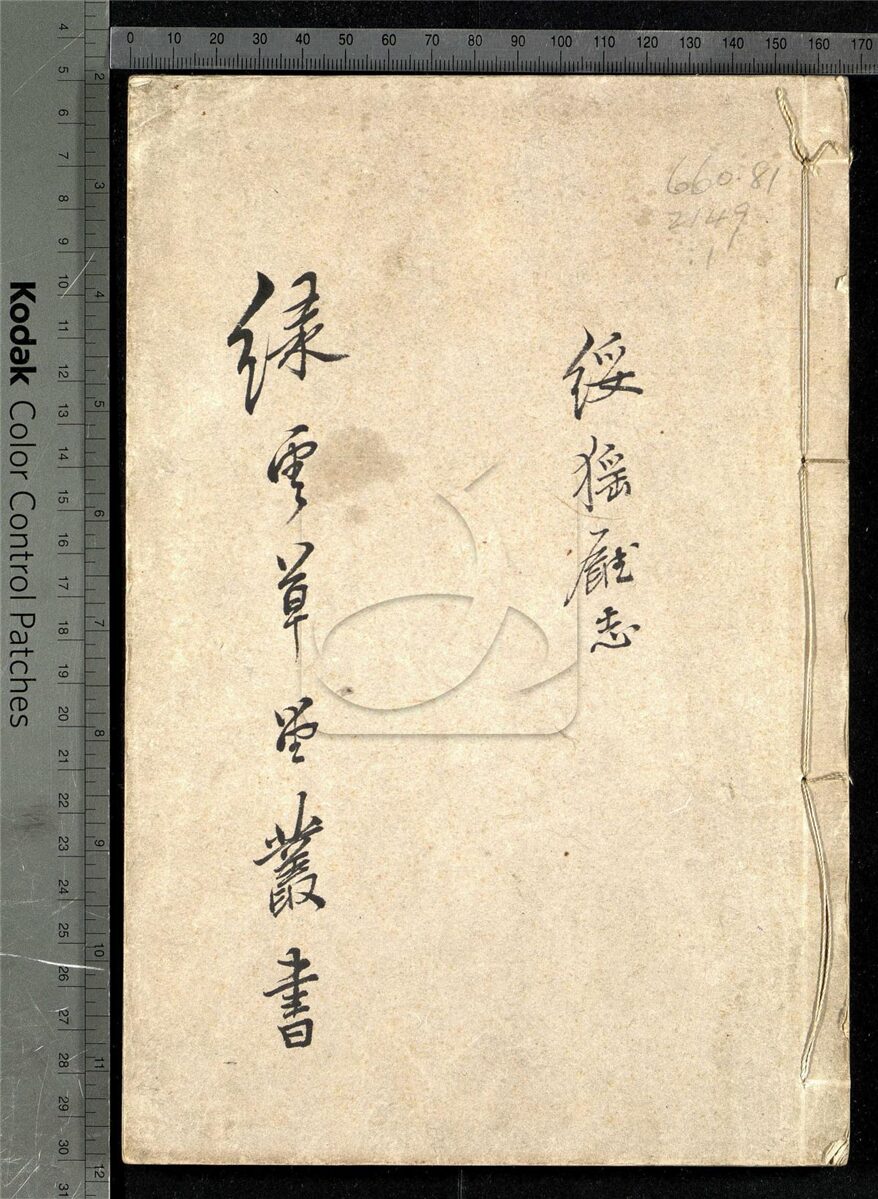 0 10 20 30 40 50 60 70 80 90 100 110 120 130 140 150 160 170
660.81
2149
綏猺廳志
綠雲草堂叢書
2 3 4 5 6 7 8 9 10 11 12
4 5 6 7 8 9 10 11 12 13 14 15 16 17 18 19 20 21 22 23 24 25 26 27 28 29 30 31
Kodak Color Control Patches